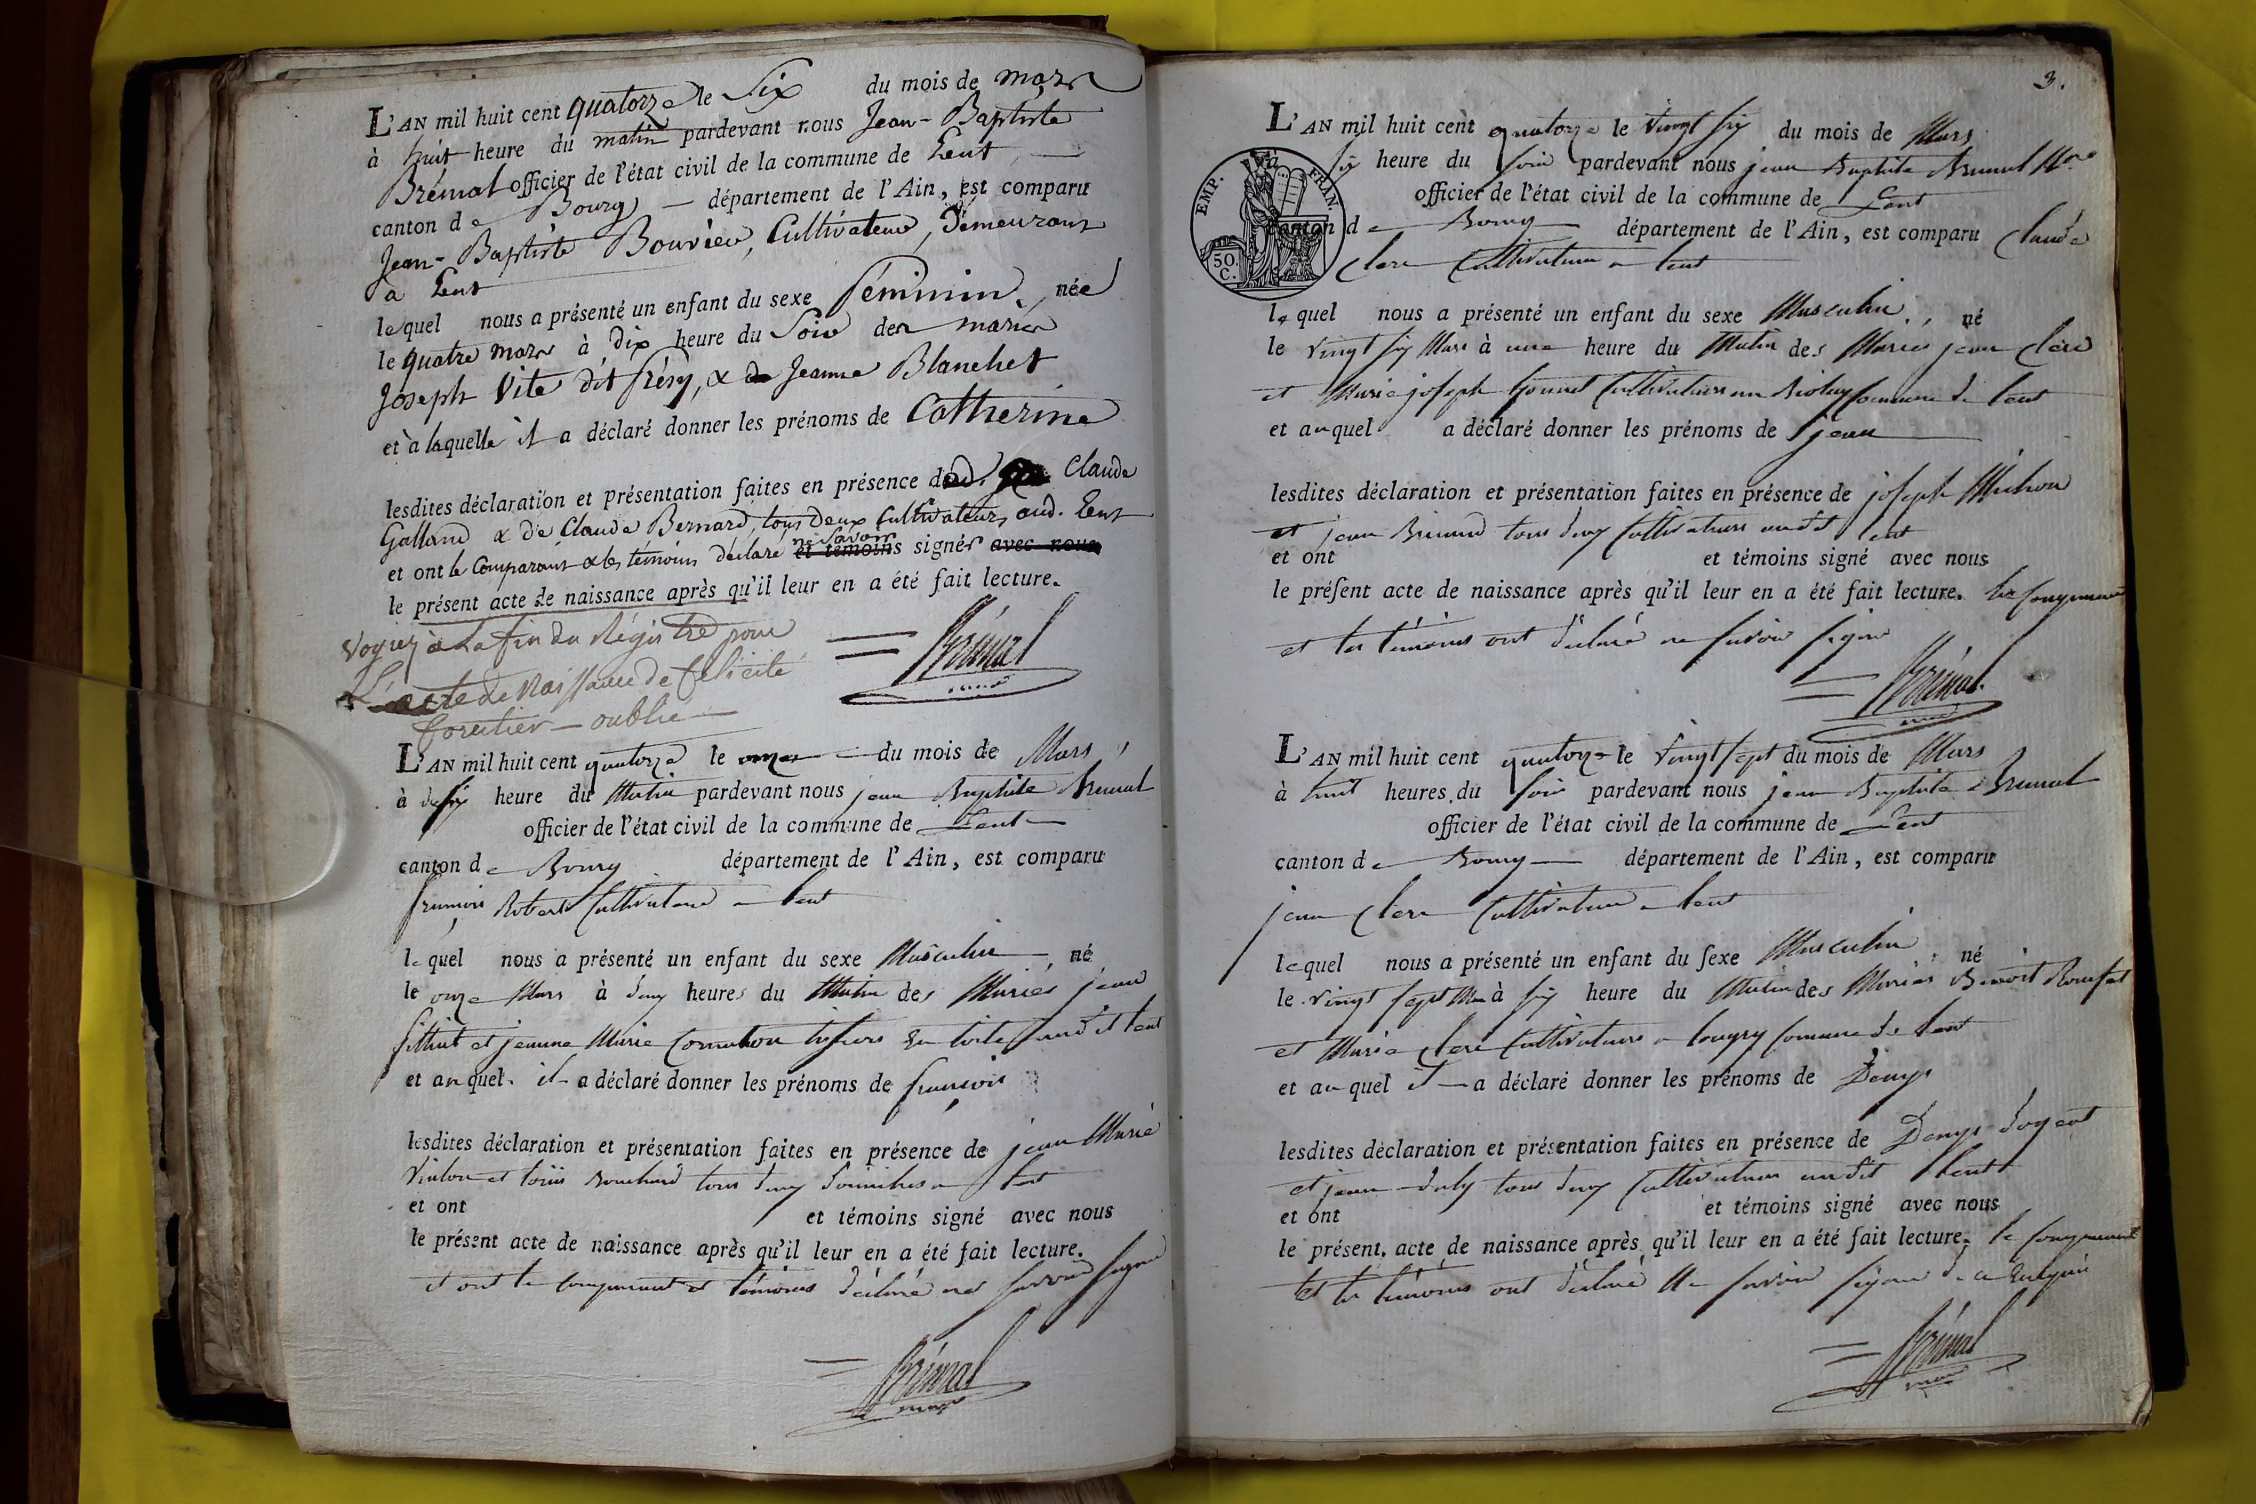 L'AN mil huit cent quatorze le Six du mois de mars
à huit heure du matin pardevant nous Jean-Baptiste
Brémal officier de l'état civil de la commune de Lent
canton de Bourg département de l'Ain, est comparu
Jean-Baptiste Bouvier, Cultivateur, Demeurant
à Lent
lequel nous a présenté un enfant du sexe féminin, née
le quatre mars à dix heure du Soir des mariés
Joseph Vite dit frésy, & de Jeanne Blanchet
et à laquelle il a déclaré donner les prénoms de Catherine
lesdites déclaration et présentation faites en présence de Claude
Galland & de Claude Bernard, tous Deux Cultivateurs aud. Lent
et ont le Comparant & les témoins déclaré ne savoir et témoins signer avec nous
le présent acte de naissance après qu'il leur en a été fait lecture.
Voyiez à La fin du Régistre pour
L'acte de Naissance de felicité
forestier - oublié
Brémal
maire
L'AN mil huit cent quatorze le onze du mois de Mars,
à dix heure du Matin pardevant nous jean Baptiste Bremal
officier de l'état civil de la commune de Lent
canton de Bourg département de l'Ain, est comparu
françois Robert Cultivateur a Lent
lequel nous a présenté un enfant du sexe Masculin, né
le onze Mars à deux heures du Matin des Mariés jean
et jeanne Marie tissiers en toile audit Lent
et auquel il a déclaré donner les prénoms de françois
lesdites déclaration et présentation faites en présence de jean Marie
et Bouchard tous deux a Lent
et ont et témoins signé avec nous
le présent acte de naissance après qu'il leur en a été fait lecture.
et ont le comparant et témoins déclaré ne savoir signer
Brémal
maire
3.
L'AN mil huit cent quatorze le vingt six du mois de Mars
à six heure du soir pardevant nous jean Baptiste Bremal Mre
officier de l'état civil de la commune de Lent
canton de Bourg département de l'Ain, est comparu Claude
Clerc Cultivateur a Lent
EMP. FRAN.
50.
C.
lequel nous a présenté un enfant du sexe Masculin, né
le vingt six Mars à une heure du Matin des Mariés jean Clerc
et Marie joseph Cultivateurs commune de Lent
et auquel a déclaré donner les prénoms de jean
lesdites déclaration et présentation faites en présence de joseph Michon
et jean tous deux Cultivateurs audit Lent
et ont et témoins signé avec nous
le présent acte de naissance après qu'il leur en a été fait lecture. Le comparant
et les témoins ont déclaré ne savoir signer
Brémal
maire
L'AN mil huit cent quatorze le vingt sept du mois de Mars
à huit heures du soir pardevant nous jean Baptiste Bremal
officier de l'état civil de la commune de Lent
canton de Bourg département de l'Ain, est comparu
jean Clerc Cultivateur a Lent
lequel nous a présenté un enfant du sexe Masculin né
le vingt sept Mars à six heure du Matin des Mariés Benoit
et Marie Clerc Cultivateurs a Longry commune de Lent
et auquel il a déclaré donner les prénoms de Denys
lesdites déclaration et présentation faites en présence de Denys
et jean tous deux Cultivateurs audit Lent
et ont et témoins signé avec nous
le présent acte de naissance après qu'il leur en a été fait lecture. le comparant
et les témoins ont déclaré ne savoir signer de ce enquis
Brémal
maire